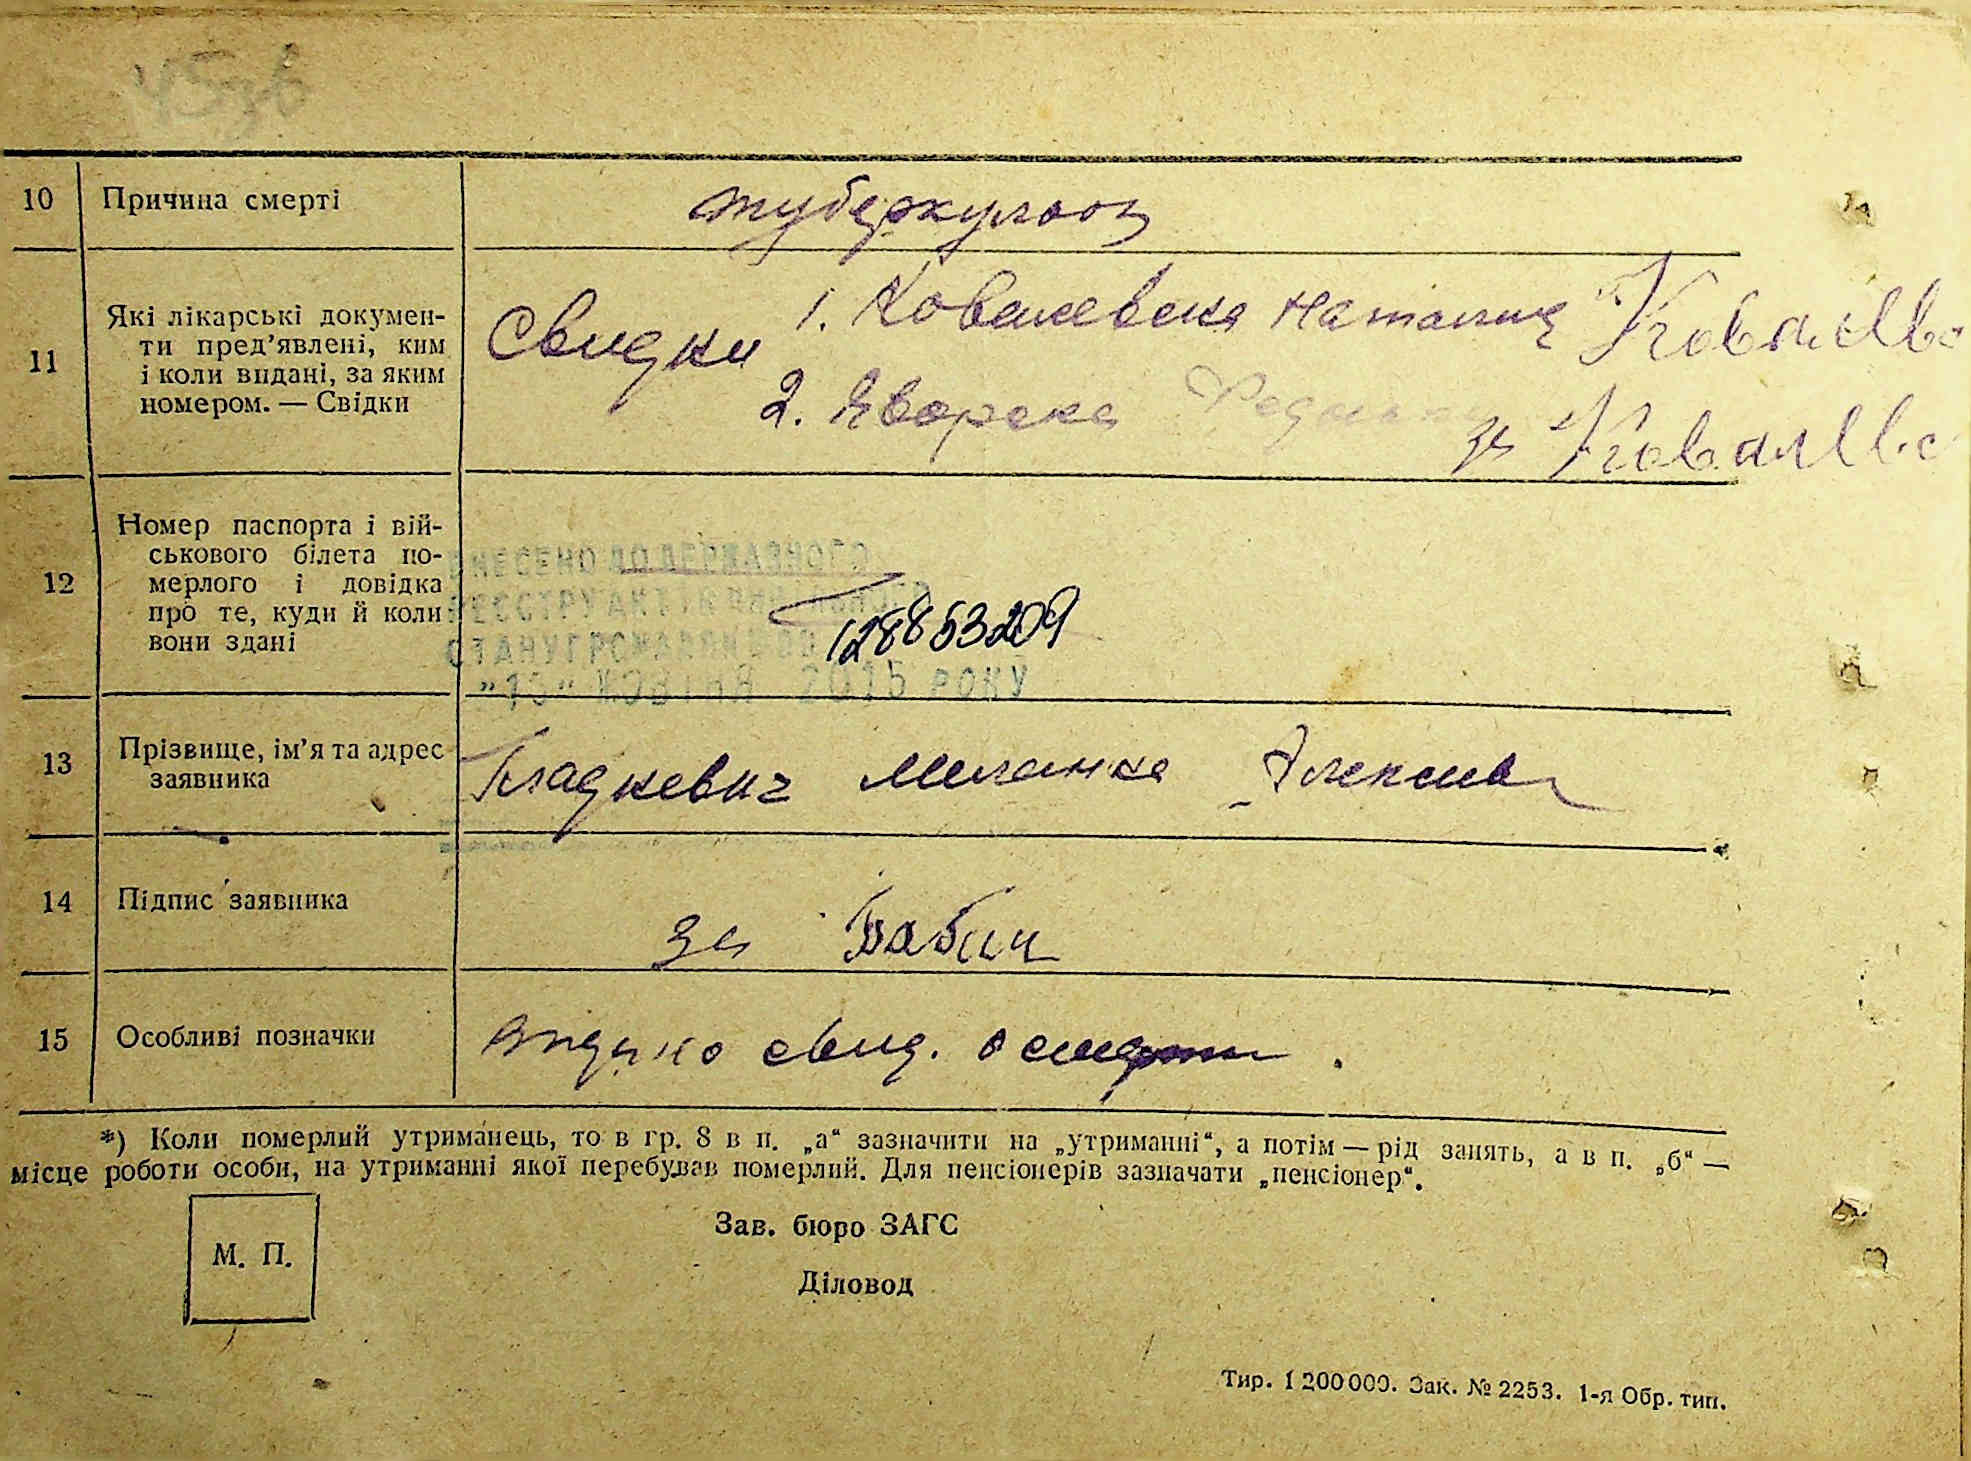 10 Причина смерті туберкульоз
11 Які лікарські докумен-
ти пред’явлені, ким
і коли видані, за яким
номером. — Свідки
Свидки 1. Ковалевска Наталия
2. Яворска
за
12 Номер паспорта і вій-
ськового білета по-
мерлого і довідка
про те, куди й коли
вони здані
ВНЕСЕНО ДО ДЕРЖАВНОГО
РЕЄСТРУ АКТІВ ЦИВІЛЬНОГО
СТАНУ ГРОМАДЯН ЗА
128853209
„15“ ЖОВТНЯ 2015 РОКУ
13 Прізвище, ім’я та адрес
заявника
Гладкевич Миланка
14 Підпис заявника
за Бабич
15 Особливі позначки
свид. о смерти.
*) Коли померлий утриманець, то в гр. 8 в п. „а“ зазначити на „утриманні“, а потім — рід занять, а в п. „б“ —
місце роботи особи, на утриманні якої перебував померлий. Для пенсіонерів зазначати „пенсіонер“.
М. П.
Зав. бюро ЗАГС
Діловод
Тир. 1 200 000. Зак. № 2253. 1-я Обр. тип.